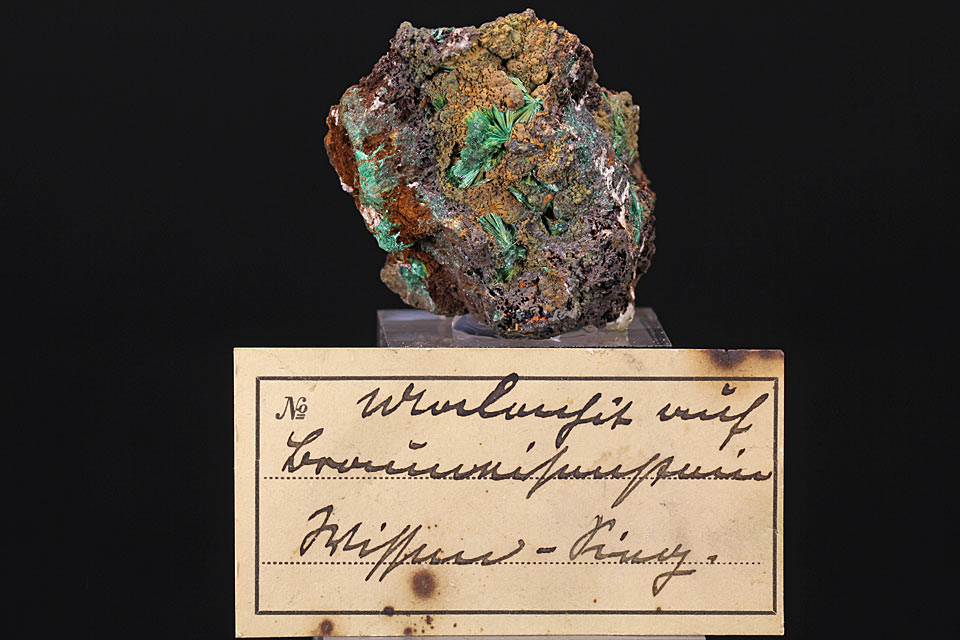 No Malachit auf
Brauneisenstein
Wissen - Sieg.